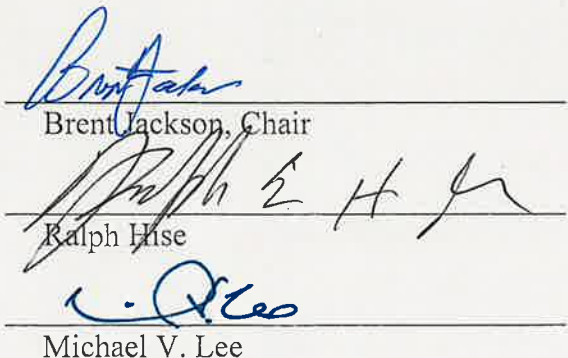 Brent Jackson
Brent Jackson, Chair
Ralph E H
Ralph Hise
Lee
Michael V. Lee